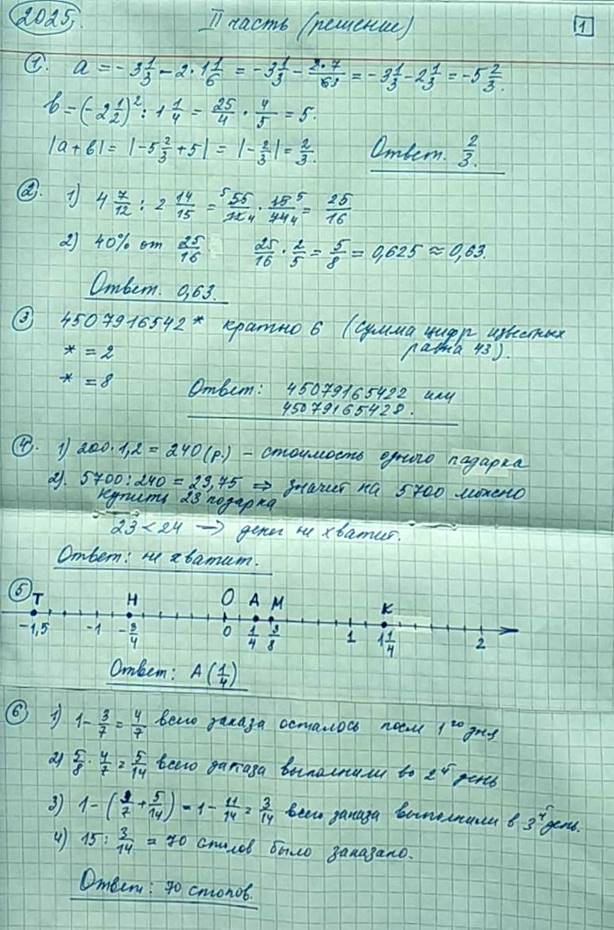 2025. II часть (решение) 1
1. a = -3 1/3 - 2 · 1 1/6 = -3 1/3 - 2·7/6 3 = -3 1/3 - 2 1/3 = -5 2/3.
b = (-2 1/2)² : 1 1/4 = 25/4 · 4/5 = 5.
|a+b| = |-5 2/3 + 5| = |-2/3| = 2/3. Ответ. 2/3.
2. 1) 4 7/12 : 2 14/15 = 5 55/12 4 · 15 5/44 4 = 25/16
2) 40% от 25/16 25/16 · 2/5 = 5/8 = 0,625 ≈ 0,63.
Ответ. 0,63.
3 4507916542* кратно 6 (сумма цифр известных
равна 43).
* = 2
* = 8 Ответ: 45079165422 или
45079165428.
4. 1) 200·1,2 = 240(р.) – стоимость одного подарка
2). 5700:240 = 23,75 ⇒ значит на 5700 можно
купить 23 подарка
23 < 24 → денег не хватит.
Ответ: не хватит.
5 T H O A M K
-1,5 -1 -3/4 0 1/4 3/8 1 1 1/4 2
Ответ: A(1/4)
6 1) 1 - 3/7 = 4/7 всего заказа осталось после 1го дня
2) 5/8 · 4/7 = 5/14 всего заказа выполнили во 2й день
3) 1 - (3/7 + 5/14) = 1 - 11/14 = 3/14 всего заказа выполнили в 3й день.
4) 15 : 3/14 = 70 столов было заказано.
Ответ: 70 столов.